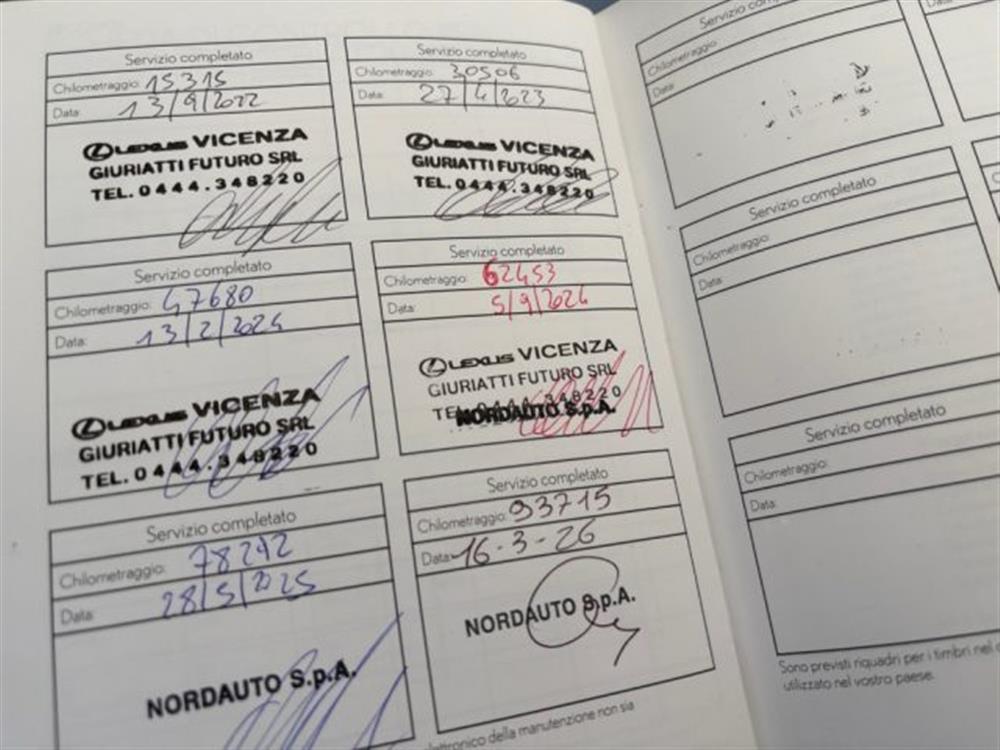 Servizio completato
Chilometraggio: 15315
Data: 13/9/2022
LEXUS VICENZA
GIURIATTI FUTURO SRL
TEL. 0444.348220
Servizio completato
Chilometraggio: 30506
Data: 27/4/2023
LEXUS VICENZA
GIURIATTI FUTURO SRL
TEL. 0444.348220
Servizio completato
Chilometraggio: 47680
Data: 13/2/2024
LEXUS VICENZA
GIURIATTI FUTURO SRL
TEL. 0444.348220
Servizio completato
Chilometraggio: 62453
Data: 5/9/2024
LEXUS VICENZA
GIURIATTI FUTURO SRL
TEL. 0444.348220
NORDAUTO S.p.A.
Servizio completato
Chilometraggio: 78242
Data: 28/5/2025
NORDAUTO S.p.A.
Servizio completato
Chilometraggio: 93715
Data: 16-3-26
NORDAUTO S.p.A.
elettronico della manutenzione non sia
Servizio
Chilometraggio:
Data:
Servizio completato
Chilometraggio:
Data:
Servizio completato
Chilometraggio:
Data:
Sono previsti riquadri per i timbri nel
utilizzato nel vostro paese.